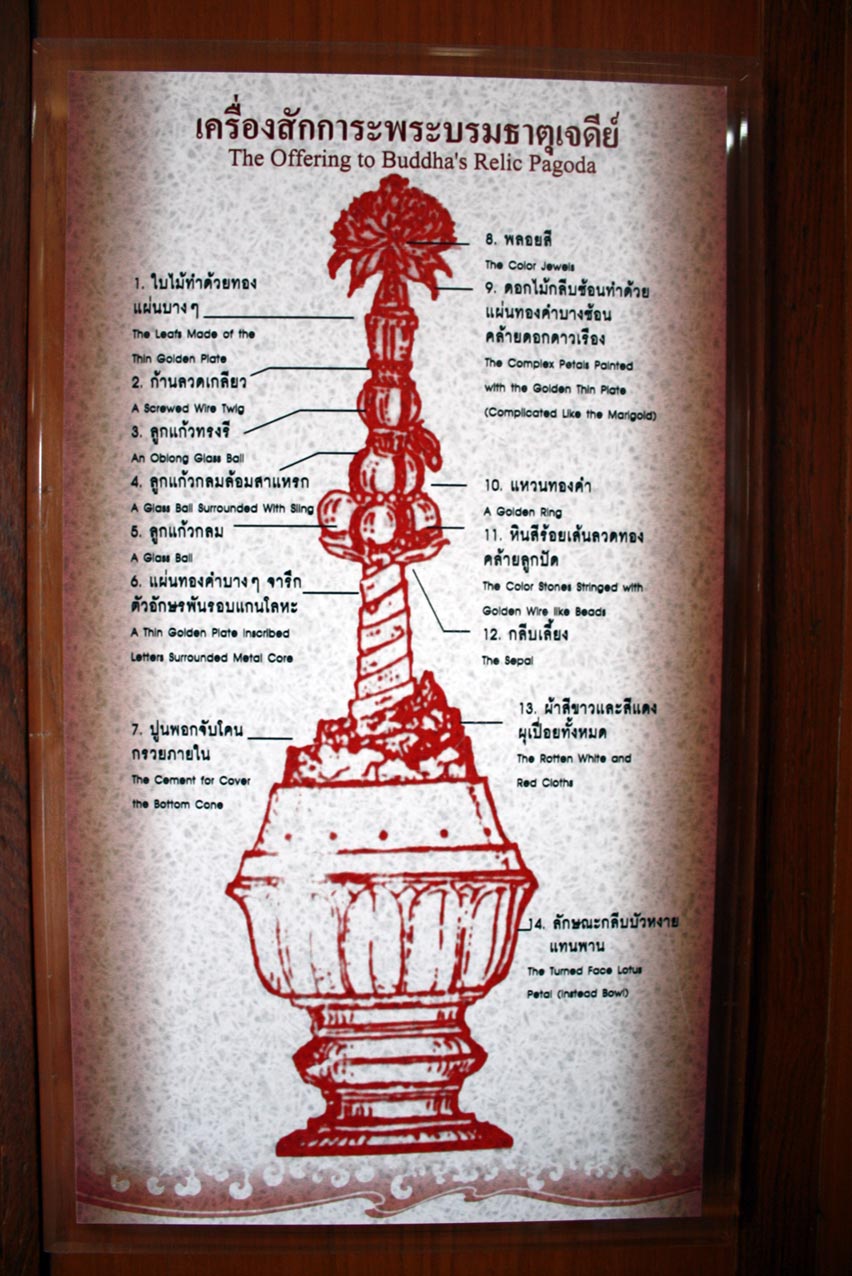 เครื่องสักการะพระบรมธาตุเจดีย์
The Offering to Buddha's Relic Pagoda
1. ใบไม้ทำด้วยทอง
แผ่นบางๆ
The Leafs Made of the
Thin Golden Plate
2. ก้านลวดเกลียว
A Screwed Wire Twig
3. ลูกแก้วทรงรี
An Oblong Glass Ball
4. ลูกแก้วกลมล้อมสาแหรก
A Glass Ball Surrounded With Sling
5. ลูกแก้วกลม
A Glass Ball
6. แผ่นทองคำบางๆ จารึก
ตัวอักษรพันรอบแกนโลหะ
A Thin Golden Plate Inscribed
Letters Surrounded Metal Core
7. ปูนพอกจับโคน
กรวยภายใน
The Cement for Cover
the Bottom Cone
8. พลอยสี
The Color Jewels
9. ดอกไม้กลีบซ้อนทำด้วย
แผ่นทองคำบางซ้อน
คล้ายดอกดาวเรือง
The Complex Petals Painted
with the Golden Thin Plate
(Complicated Like the Marigold)
10. แหวนทองคำ
A Golden Ring
11. หินสีร้อยเส้นลวดทอง
คล้ายลูกปัด
The Color Stones Stringed with
Golden Wire like Beads
12. กลีบเลี้ยง
The Sepal
13. ผ้าสีขาวและสีแดง
ผุเปื่อยทั้งหมด
The Rotten White and
Red Cloths
14. ลักษณะกลีบบัวหงาย
แทนพาน
The Turned Face Lotus
Petal (Instead Bowl)